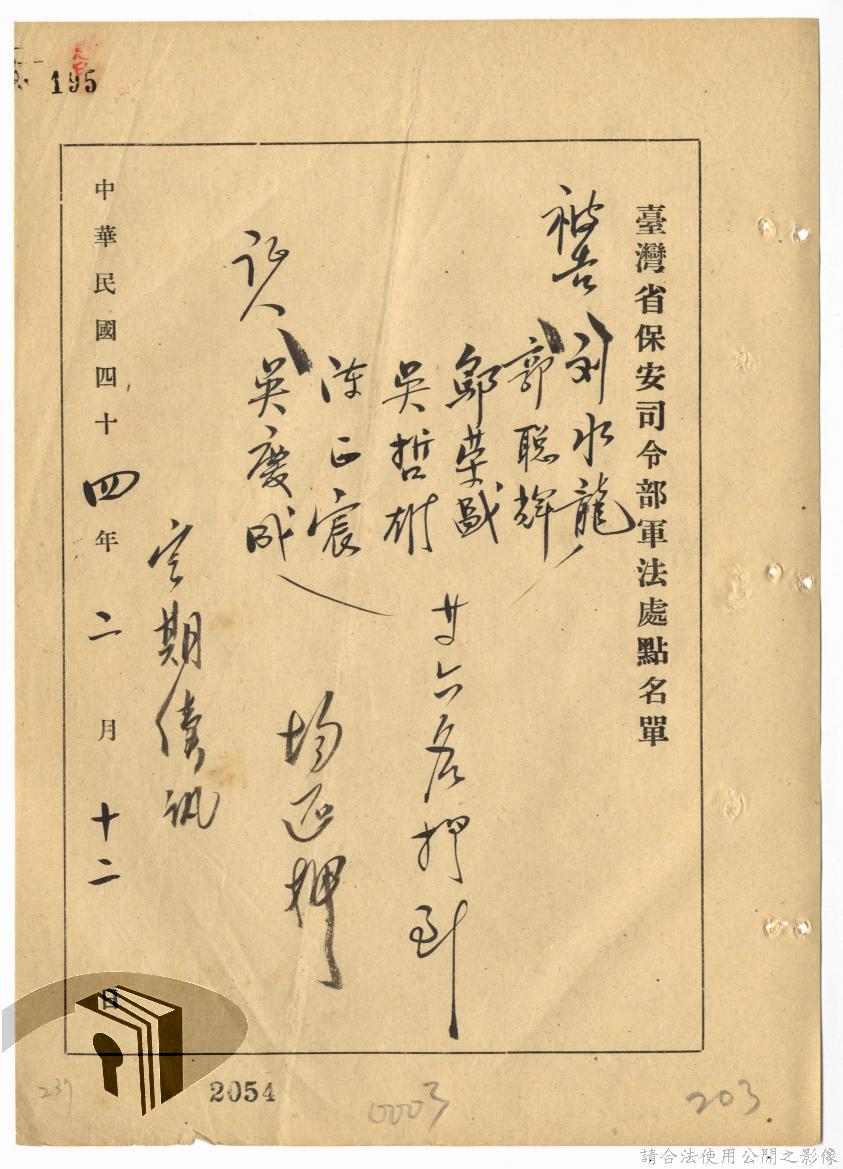 195
臺灣省保安司令部軍法處點名單
被告 刘水龍
郭聡輝
鄔荣
吳哲雄
陳正宸
证人 英慶成
廿六名押到
均还押
定期續訊
中華民國四十四年二月十二日
237
2054
0003
203
請合法使用公開之影像